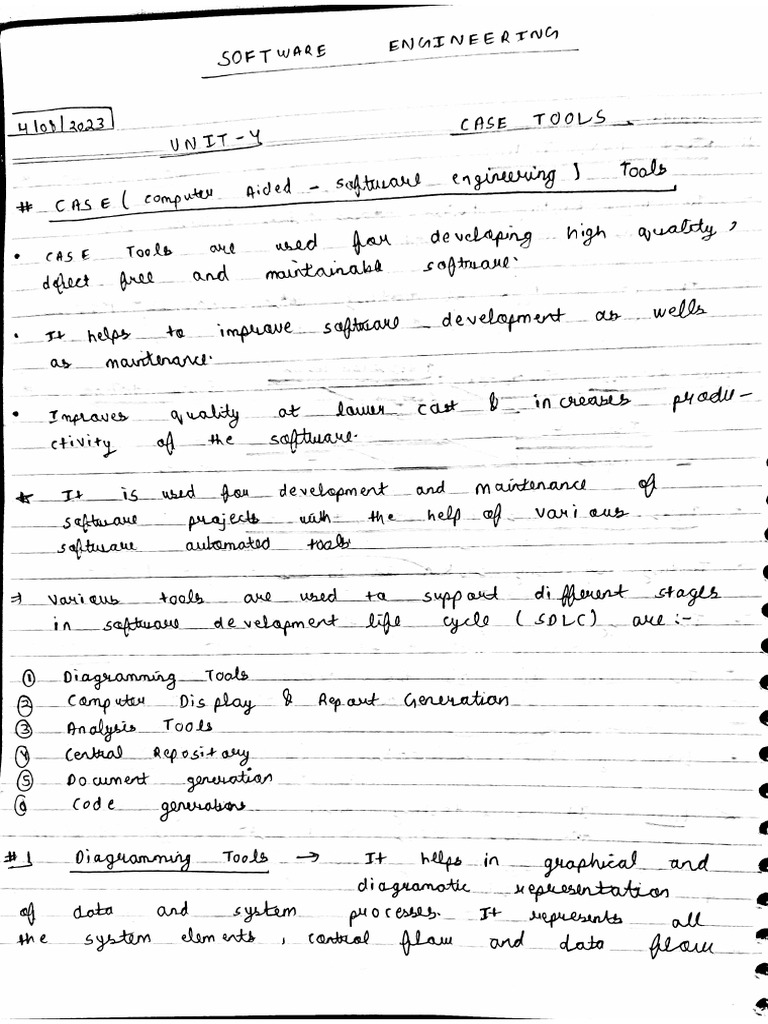 SOFTWARE ENGINEERING
4/08/2023
UNIT-4 CASE TOOLS.
# CASE ( Computer Aided - software engineering ) Tools
• CASE Tools are used for developing high quality,
defect free and maintainable software.
• It helps to improve software development as wells
as maintenance.
• Improves quality at lower cost & increases produ-
ctivity of the software.
* It is used for development and maintenance of
software projects with the help of various
software automated tools
⇒ various tools are used to support different stages
in software development life cycle ( SDLC) are :-
① Diagramming Tools
② Computer Display & Report Generation
③ Analysis Tools
④ Central Repository
⑤ Document generation
⑥ Code generations
#1 Diagramming Tools → It helps in graphical and
diagramatic representation
of data and system processes. It represents all
the system elements, control flow and data flow